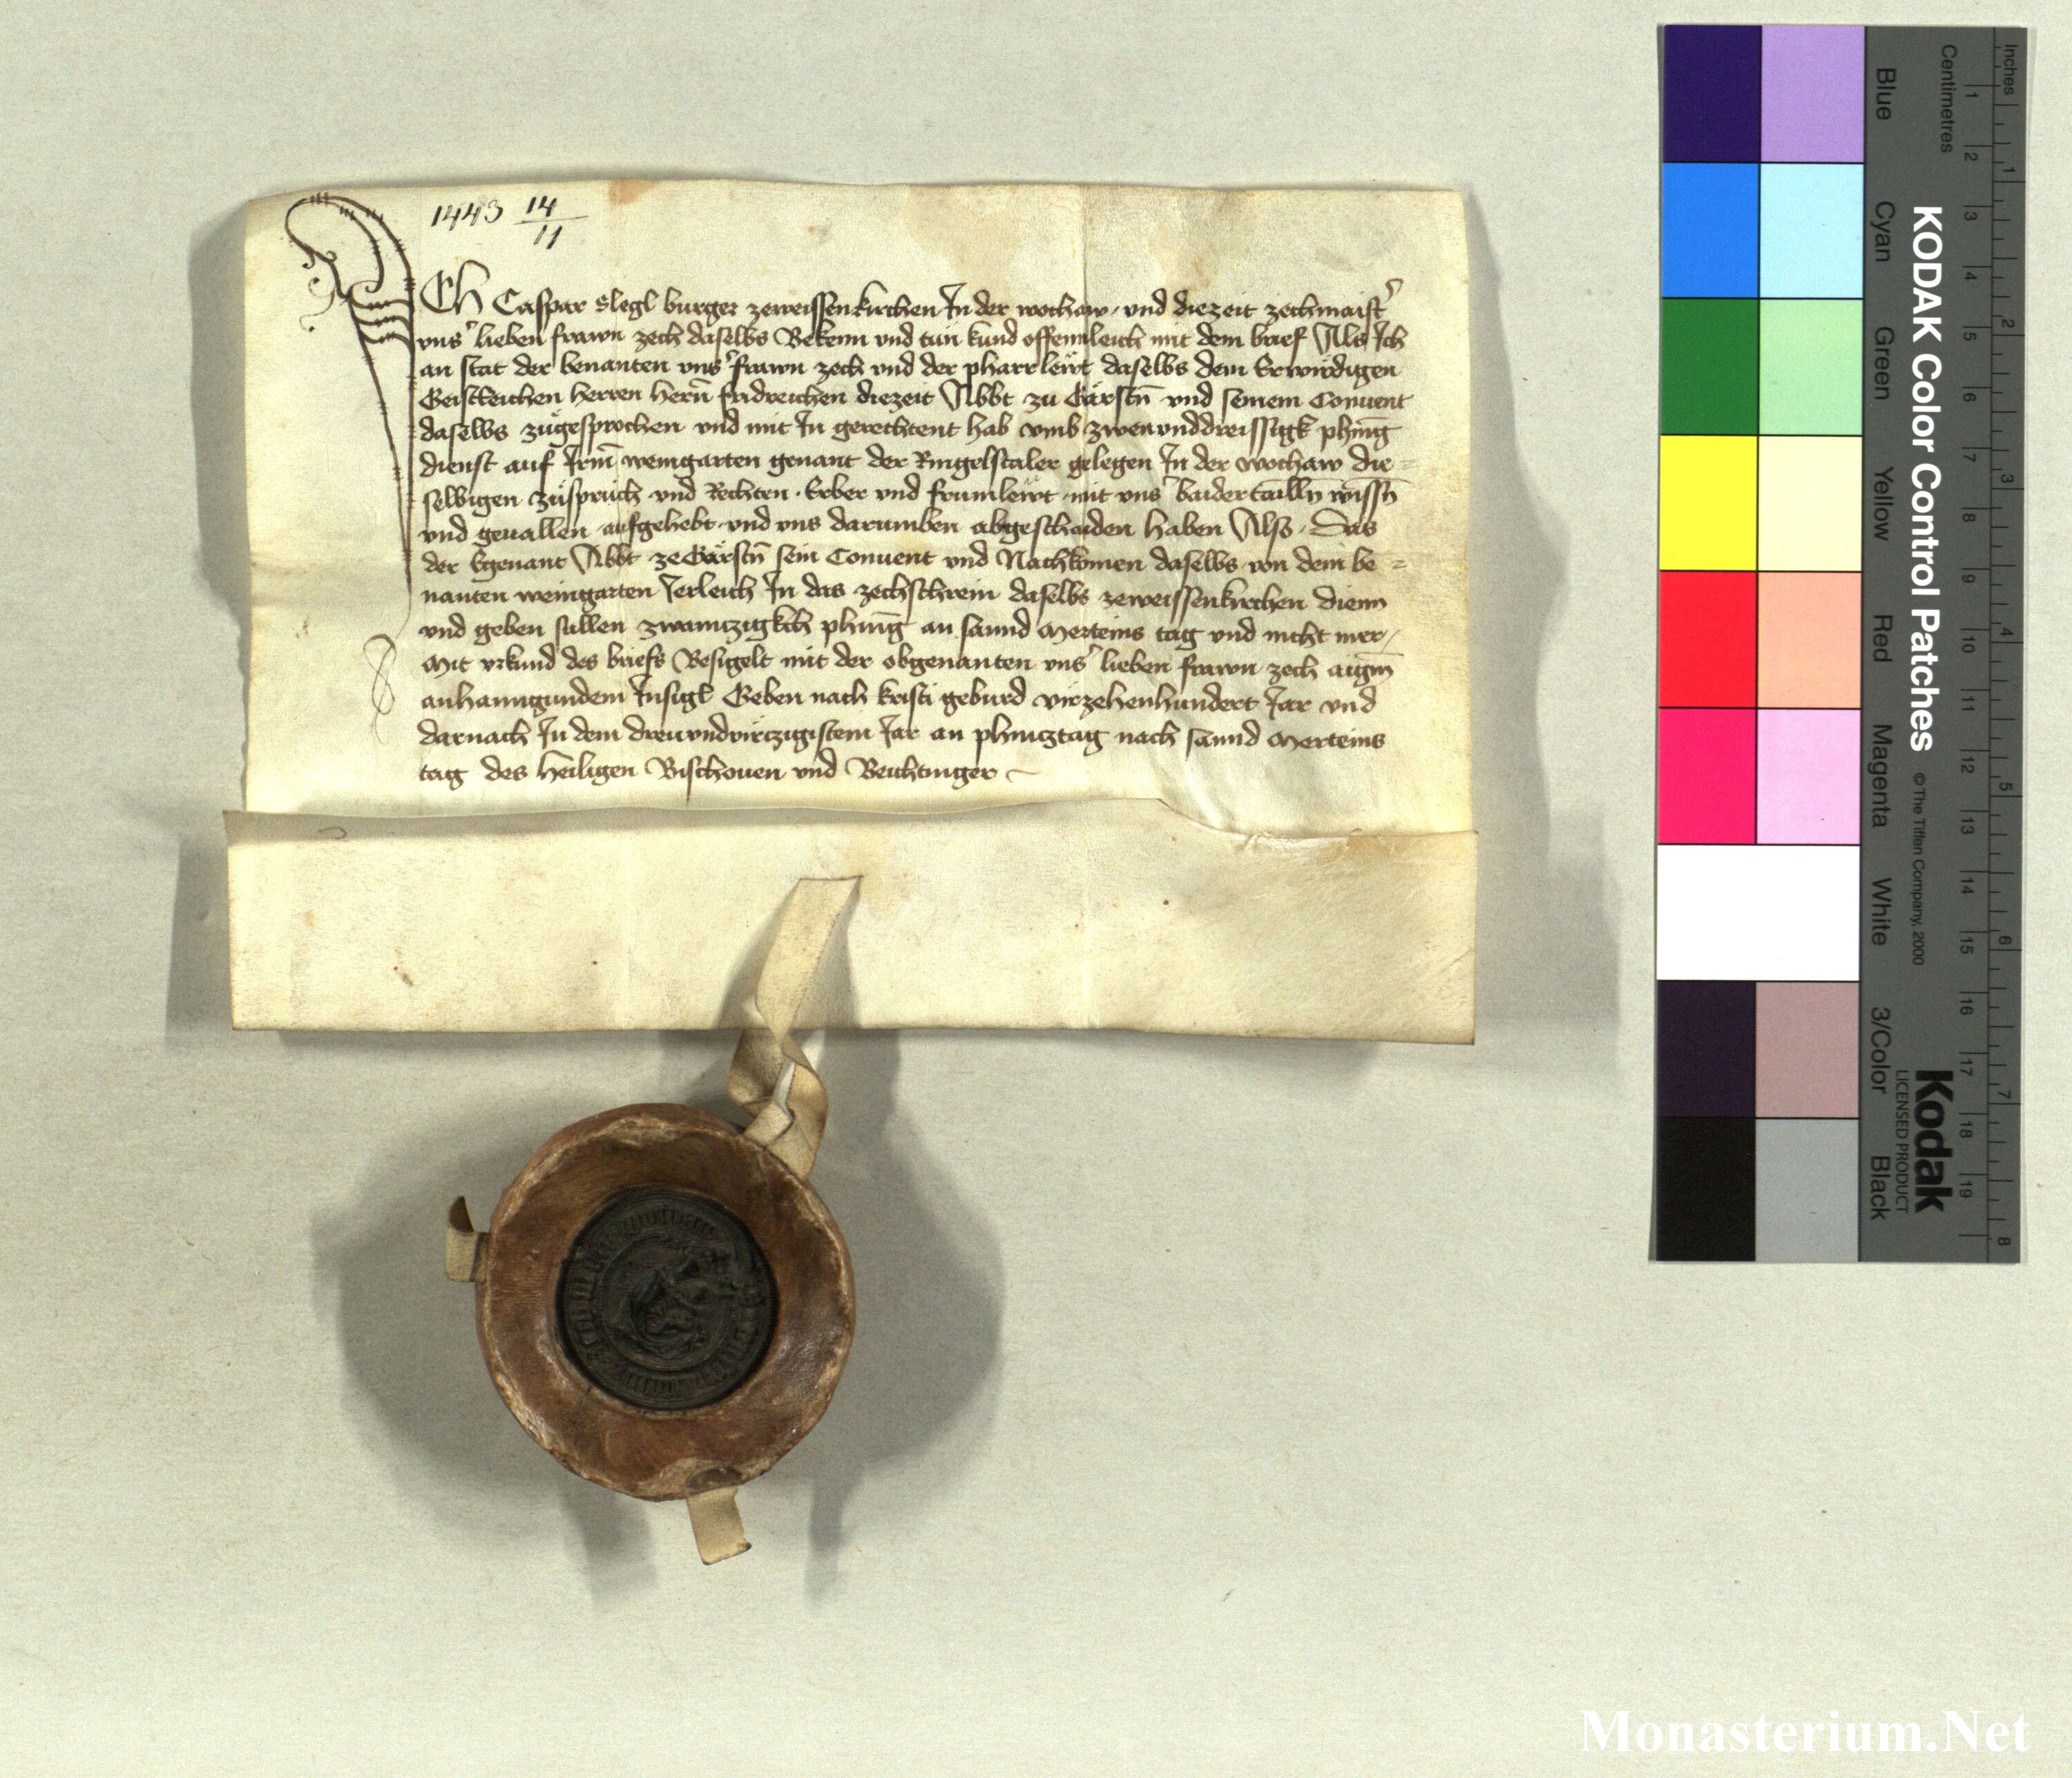 1443 14/11
Ich Caspar Slegl burger zeweissenkirchen In der wochaw und diezeit zechmaist'
uns' lieben frawn zech daselbs Bekenn und tun kund offennleich mit dem brief Als Ich
an stat der benanten uns' frawn zech und der pharrlewt daselbs dem Erwirdigen
Geistleichen herren hern fridreichen diezeit Abbt zu Gärstn und seinem Conuent
daselbs zugesprochen und mit In gerechtent hab umb zwenunddreissigk phing
dienst auf Irm weingarten genant der Ringelstaler gelegen In der wochaw die=
selbigen zuspruch und Rechten Erber und frumlewt mit uns' baider tailln wissn
und geuallen aufgehebt und uns darumben abgeschaiden haben Also Das
der Egenant Abbt ze Gärstn sein Conuent und Nachkomen daselbs von dem be=
nanten weingarten Jerleich In das zechschrein daselbs zeweissenkirchen dienn
und geben sullen zwainzigkch phing an sannd Merteins tag und nicht mer
Mit urkund des briefs Besigelt mit der obgenanten uns' lieben frawn zech aigm
anhanngundem Insigl Geben nach kristi geburd virzehenhundert Jar und
darnach In dem drewundvirczigistem Jar an phincztag nach sannd Merteins
tag des heiligen Bischouen und Beichtinger
KODAK Color Control Patches
© The Tiffen Company, 2000
Kodak
LICENSED PRODUCT
Inches 1 2 3 4 5 6 7 8
Centimetres 1 2 3 4 5 6 7 8 9 10 11 12 13 14 15 16 17 18 19
Blue
Cyan
Green
Yellow
Red
Magenta
White
3/Color
Black
Monasterium.Net